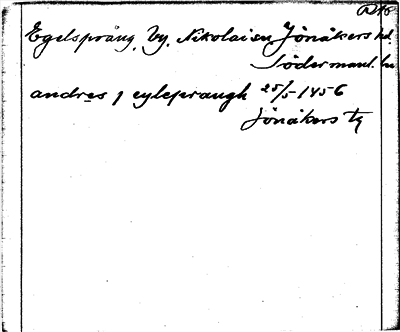 Egelspräng, by, Nikolai sn Jönåkers hd.
Södermanl. ln
andres j eyleprangh 25/5 1456
Jönåkers tg